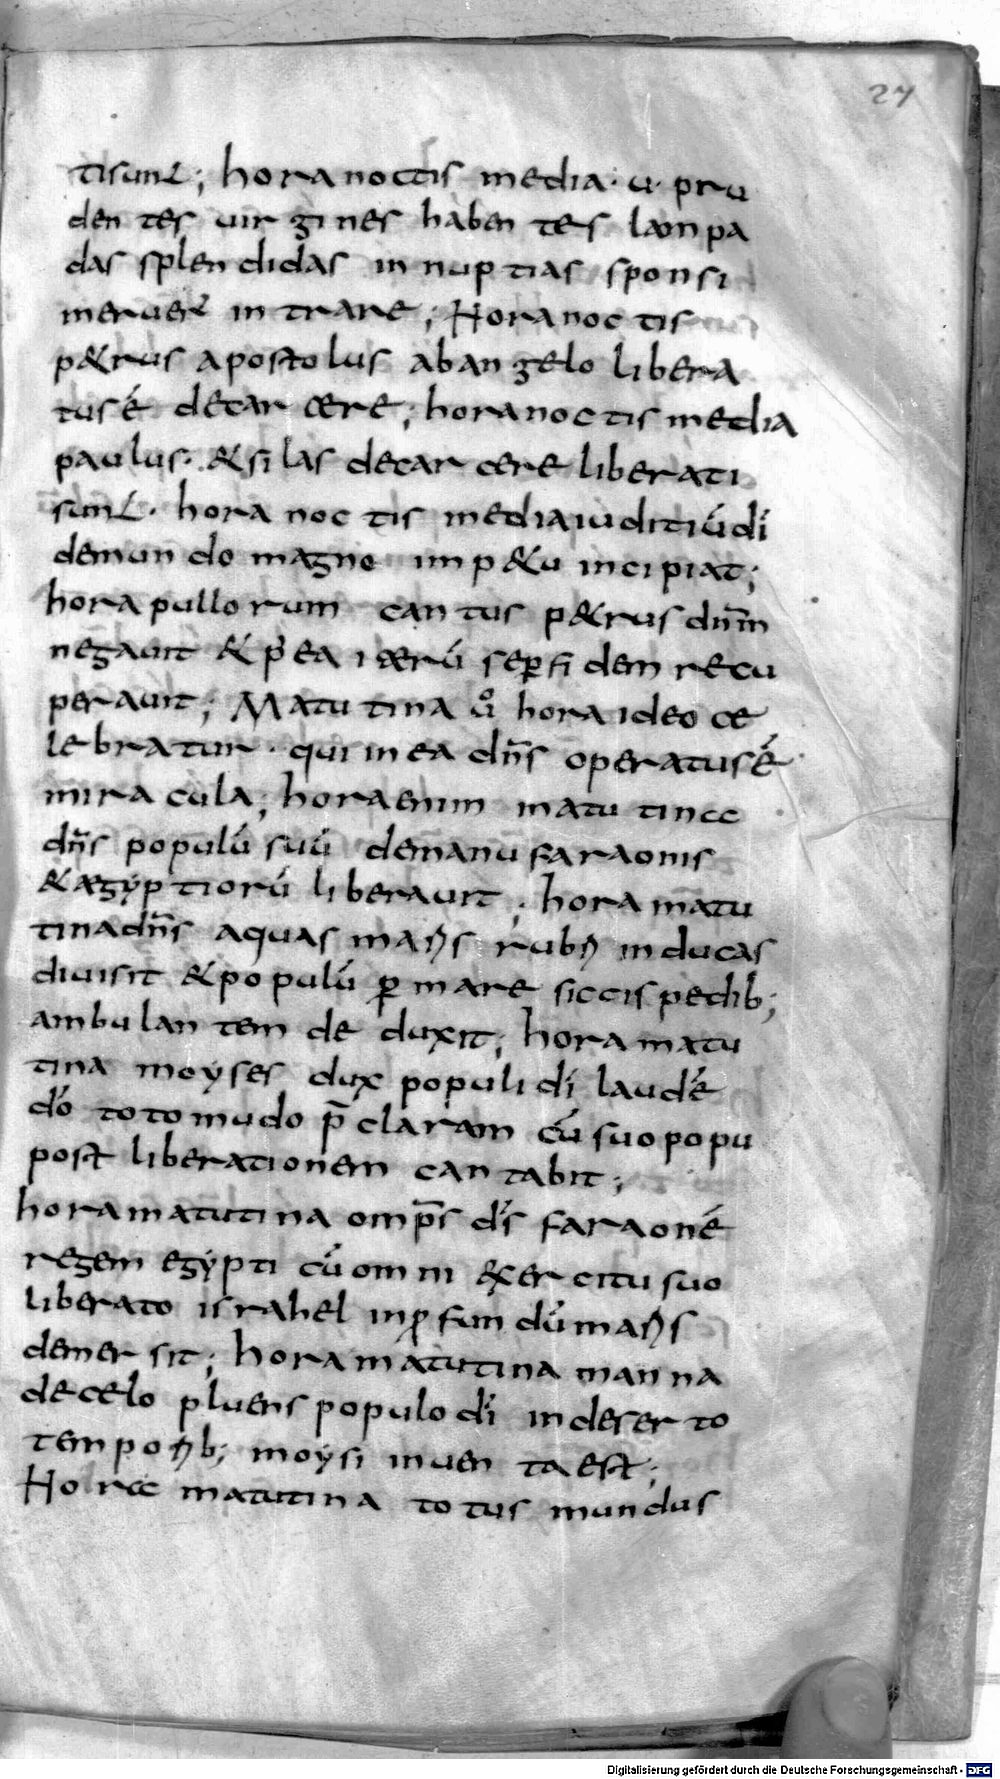 27
tisunt; hora noctis media · u · pru
den tes uir gi nes haben tes lam pa
das splen didas in nup tias spon si
meruer̄ in trare; Hora noc tis
p&rus aposto lus aban gelo libera
tusé decar cere; hora noc tis media
paulus · &silas decar cere liberati
sunt · hora noc tis media iuditiū dī
demun do magno imp&u incipiat;
hora pullorum can tus p&rus dn̄m
negauit & p̄ ea iterū sep̱ fi dem recu
perauit; Matu tina ū hora ideo ce
le bratur · qui in ea dn̄s operatusé
mira cula; hora enim matu tincc
dn̄s populū suū demanu faraonis
&ægyp tiorū li berauit; hora matu
tina dn̄s aquas maris rubri in ducas
diuisit &populū ꝑ mare siccis pedib;
ambulan tem de duxit; hora matu
tina moyses dux populi dī laudē
dō toto mudo p̄claram cū suo popu
post liberationem can tabit;
hora matutina omp̄s dī̄s faraonē
regem egypti cū om ni exer citu suo
liberato israhel inꝓfun dū maris
demer sit; hora matutina man na
decelo pluens populo dī indeser to
tempo rib; moysi inuen ta est;
Ho rcc matutina to tus mundus
Digitalisierung gefördert durch die Deutsche Forschungsgemeinschaft · DFG